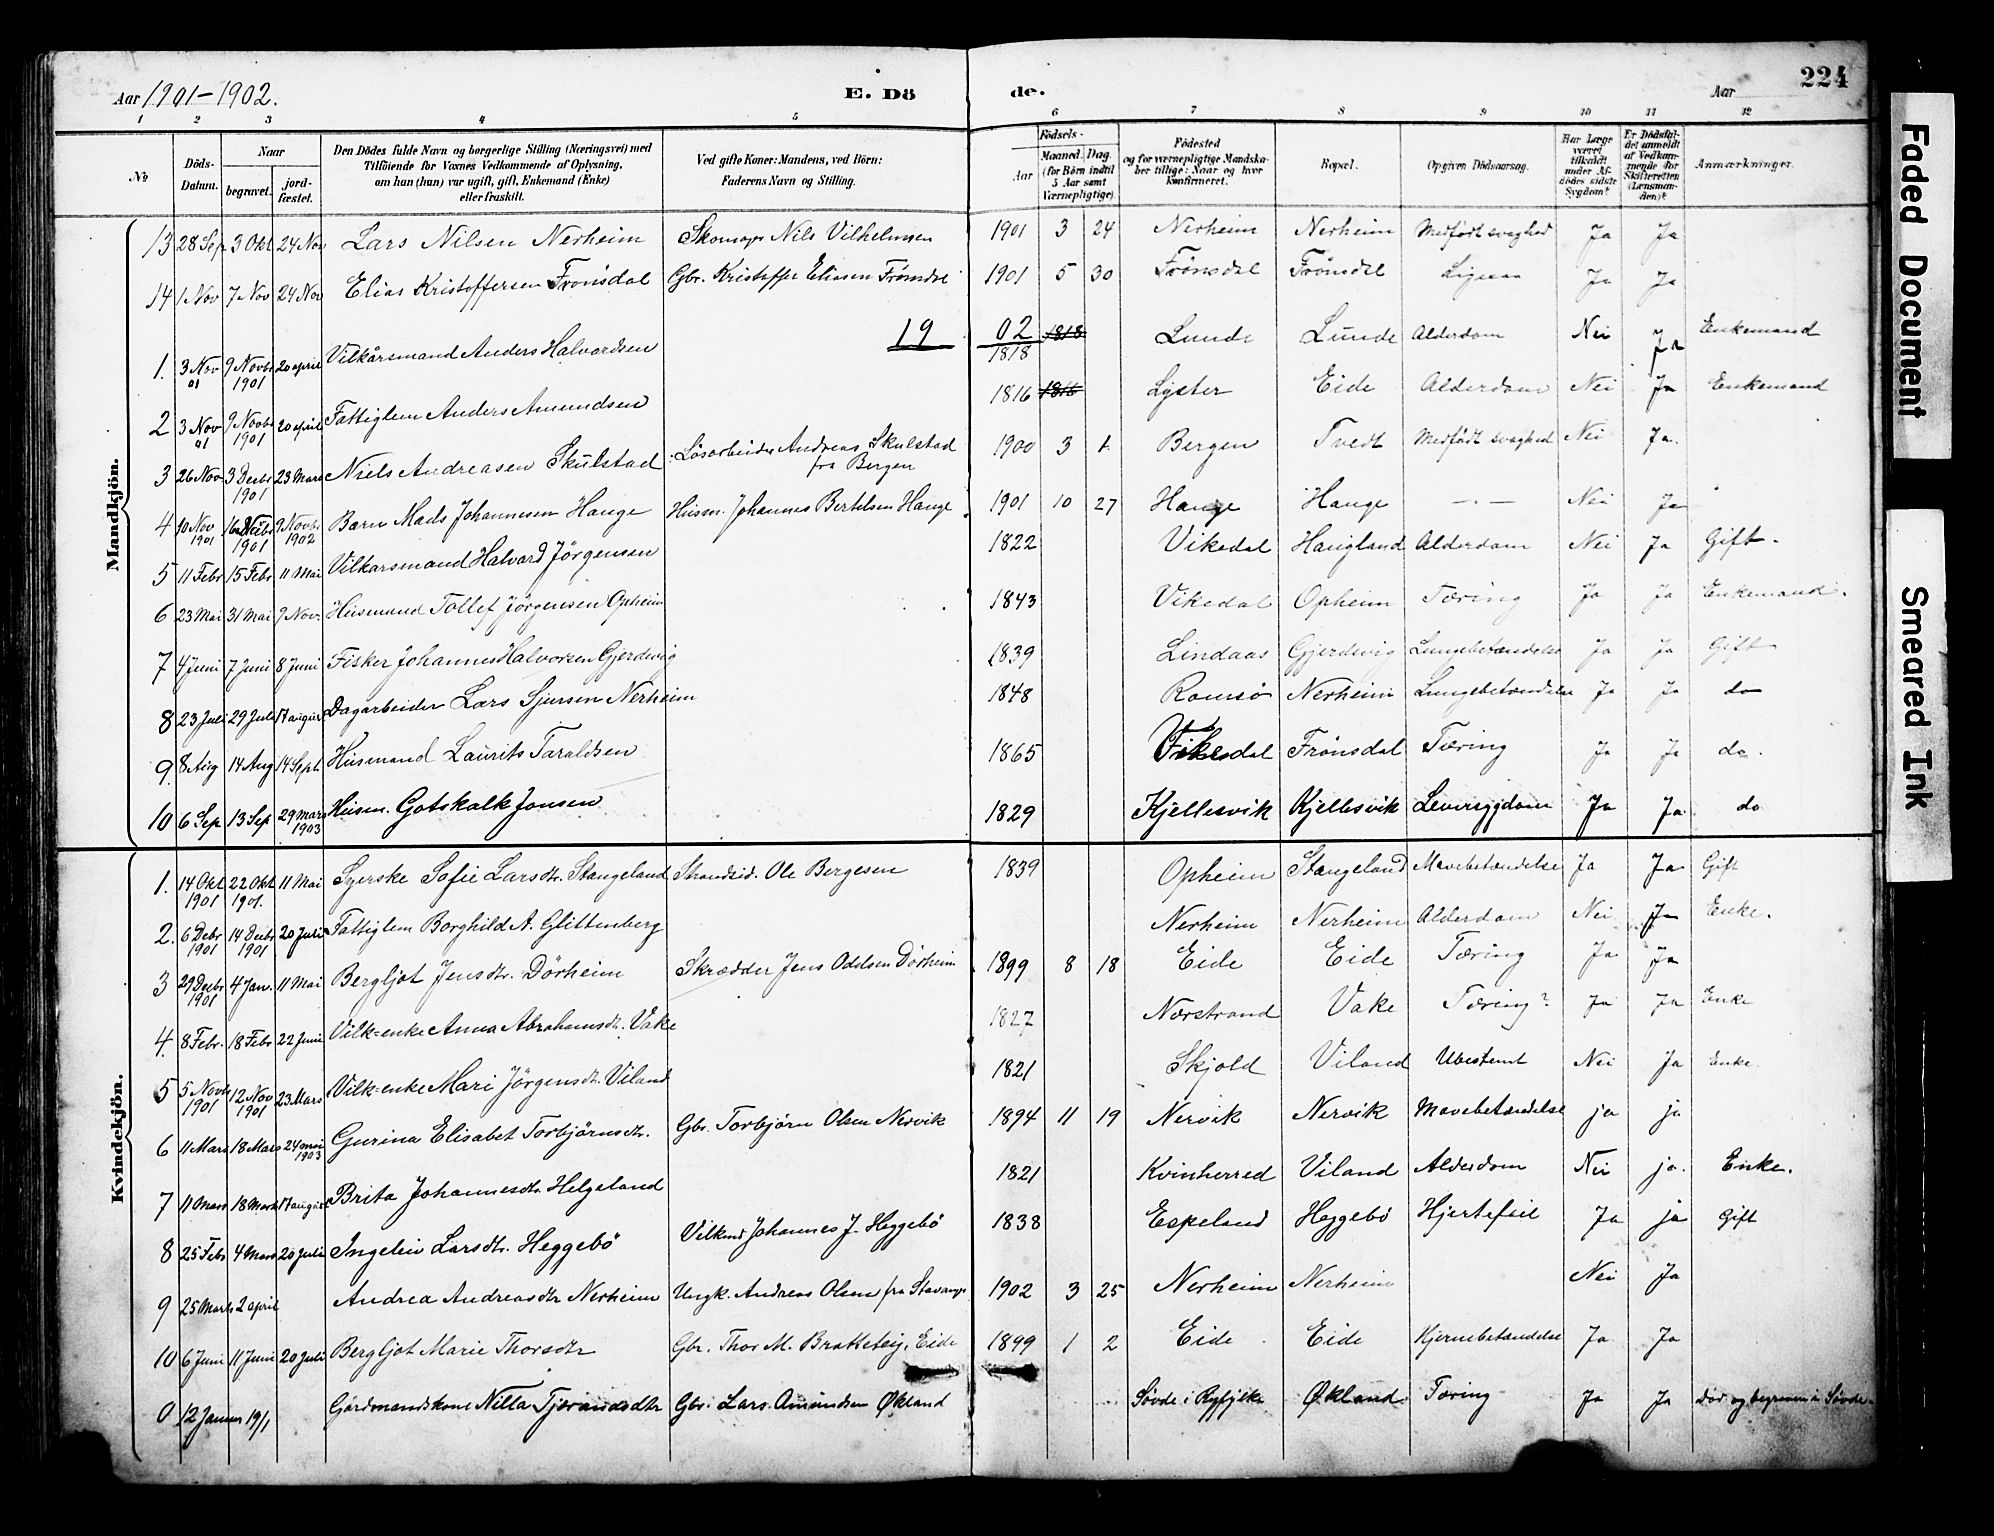 Aar 1901-1902. E. Dö de. Aar 224
1 2 3 4 5 6 7 8 9 10 11 12
No Döds-Datum. Naar begravet. jordfæstet. Den Dödes fulde Navn og borgerlige Stilling (Næringsvei) med Tilföiende for Voxnes Vedkommende af Oplysning, om han (hun) var ugift, gift, Enkemand (Enke) eller fraskilt. Ved gifte Koner: Mandens, ved Börn: Faderens Navn og Stilling. Födsels- Aar Maaned. Dag. (for Börn indtil 5 Aar samt Værnepligtige) Födested og for værnepligtige Mandskaber tillige: Naar og hvor konfirmeret. Bopæl. Opgiven Dödsaarsag. Har Læge været tilkaldt under Afdödes sidste Sygdom? Er Dödsfaldet anmeldt af Vedkommende for Skifteretten (Lensmanden)? Anmærkninger.
Mandkjön.
13 28 Sep 3 Okt 24 Nov Lars Nilsen Nerheim Skomager Nils Vilhelmsen 1901 3 24 Nerheim Nerheim Medfödt svaghed Ja Ja
14 1 Nov 7 Nov 24 Nov Elias Kristoffersen Frönsdal Gbr. Kristoffer Eliasen Frönsdal 1901 5 30 Frönsdal Frönsdal Ligesaa Ja Ja
19 02
1. 3 Nov 01 9 Novbr 1901 20 april Vilkårsmand Anders Halvordsen 1818 1818 Lunde Lunde Alderdom Nei Ja Enkemand
2 3 Nov 01 9 Novbr 1901 20 april Fattiglem Anders Amundsen 1816 1816 Lyster Eide Alderdom Nei Ja Enkemand
3 26 Nov 3 Desbr 1901 23 Mars Niels Andreasen Skulstad Lösarbeider Andreas Skulstad fra Bergen 1900 3 1 Bergen Tvedt Medfödt svaghed Nei Ja.
4 10 Nov 1901 16 Novbr 1901 9 Novbr 1902 Barn Mads Johannesen Hauge Husm. Johannes Bertelsen Hauge 1901 10 27 Hauge Hauge -"- Nei Ja
5 11 Febr 15 Febr 11 Mai Vilkarsmand Halvard Jörgensen 1822 Vikedal Haugland Alderdom Nei Ja Gift.
6 23 Mai 31 Mai 9 Nov. Husmand Tollef Jörgensen Opheim 1843 Vikedal Opheim Tæring Ja Ja Enkemand.
7 4 Juni 7 Juni 8 Juni Fisker Johannes Halvorsen Gjerdevig 1839 Lindaas Gjerdevig Lungebetændelse Ja Ja Gift
8 23 Juli 29 Juli 17 august Dagarbeider Lars Sjursen Nerheim 1848 Romsö Nerheim Lungebetændelse Ja Ja do
9. 8 Aug 14 Aug 14 Sept Husmand Laurits Taraldsen 1865 Vikedal Frönsdal Tæring Ja Ja do.
10 6 Sep 13 Sep 29 Mars 1903 Husm. Gotskalk Jonsen 1829 Kjellesvik Kjellesvik Leversygdom Ja Ja do
Kvindekjön.
1. 14 Okt 1901 22 Okt 1901. 11 Mai Syerske Sofie Larsdtr. Stangeland Strandsid. Ole Bergesen 1839 Opheim Stangeland Mavebetændelse Ja Ja Gift
2. 6 Debr 1901 14 Desbr 1901 20 Juli Fattiglem Borghild A. Glittenberg Nerheim Nerheim Alderdom Nei Ja Enke.
3 29 Desbr 1901 4 Jan. 11 Mai Bergljot Jensdtr. Dörheim Skrædder Jens Oddsen Dörheim 1899 8 18 Eide Eide Tæring Ja Ja
4. 8 Febr. 18 Febr 22 Juni Vilk=enke Anna Abrahamsdtr. Vake 1827 Nærstrand Vake Tæring? Ja Ja Enke
5 5 Novbr 1901 12 Nov 1901 23 Mars Vilk=enke Mari Jörgensdtr. Viland 1821 Skjold Viland Ubestemt Nei Ja Enke.
6 11 Mars 18 Mars 24 mai 1903 Gurina Elisabet Torbjörnsdtr. Gbr. Torbjörn Olsen Nervik 1894 11 19 Nervik Nervik Mavebetændelse ja ja
7 11 Mars 18 Mars 17 august Brita Johannesdtr. Helgeland 1821 Kvinherred Viland Alderdom Nei ja. Enke.
8 25 Febr 4 Mars 20 Juli Ingeleiv Larsdtr. Heggebö Vilkmd Johannes J. Heggebö 1838 Espeland Heggebö Hjertefeil Ja ja Gift
9 25 Marts 2 april Andrea Andreasdtr Nerheim Ungk. Andreas Olsen fra Stavanger 1902 3 25 Nerheim Nerheim Nei Ja
10 6 Juni 11 Juni 20 Juli Bergljot Marie Thorsdtr Gbr. Thor M. Bratteteig, Eide 1899 1 2 Eide Eide Hjernebetændelse Ja Ja
0 12 Januar 19/1 Gårdmandskone Nilla Tjerandsdtr Gbr. Lars Amundsen Økland Søvde i Ryfylke Økland Tæring Ja Ja Död og begraven i Søvde.
Faded Document
Smeared Ink